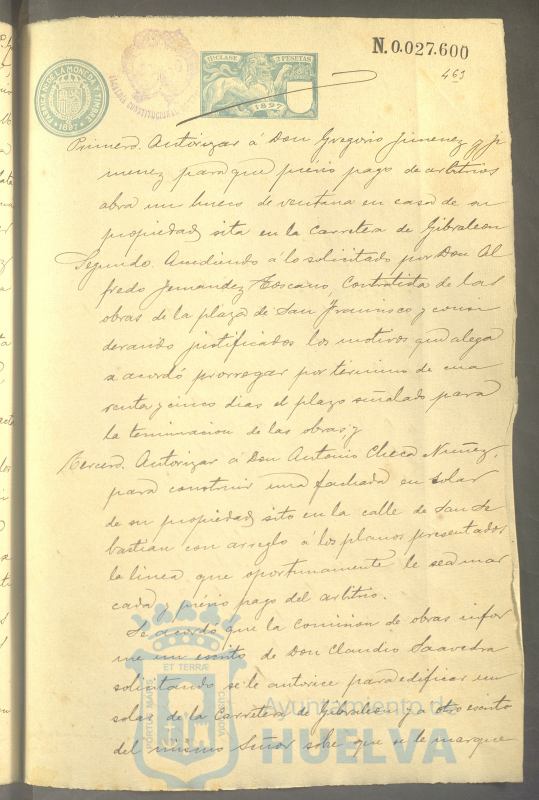 N.0.027.600
463
FABRICA NAL DE LA MONEDA Y TIMBRE
1897
ALCALDIA CONSTITUCIONAL
11ª CLASE 2 PESETAS
1897
Primero. Autorizar á Don Gregorio Jimenez y Ji
menez para que previo pago de arbitrios
abra un hueco de ventana en casa de su
propiedad, sita en la carretera de Gibraleon
Segundo. Accediendo á lo solicitado por Don Al
fredo Fernandez Toscano, Contratista de las
obras de la plaza de San Francisco y consi
derando justificados los motivos que alega
se acordó prorrogar por término de cua
renta y cinco dias el plazo señalado para
la terminacion de las obras y
Tercero. Autorizar á Don Antonio Checa Nuñez,
para construir una fachada en solar
de su propiedad, sito en la calle de San Se
bastian con arreglo á los planos presentados
la linea que oportunamente le sea mar
cada y previo pago del arbitrio.
Se acordó que la Comision de obras infor
me un escrito de Don Claudio Saavedra
solicitando se le autorice para edificar un
solar de la Carretera de Gibraleon y a otro escrito
del mismo Señor sobre que se le marque
PORTUS MARIS ET TERRÆ CUSTODIA
Ayuntamiento de
HUELVA